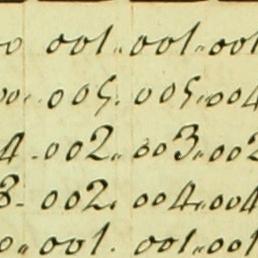 0 001.. 001.. 001
00.. 005. 005..004
4 .002.. 003..002
8- 002. 004..004
0.. 001. 001..001